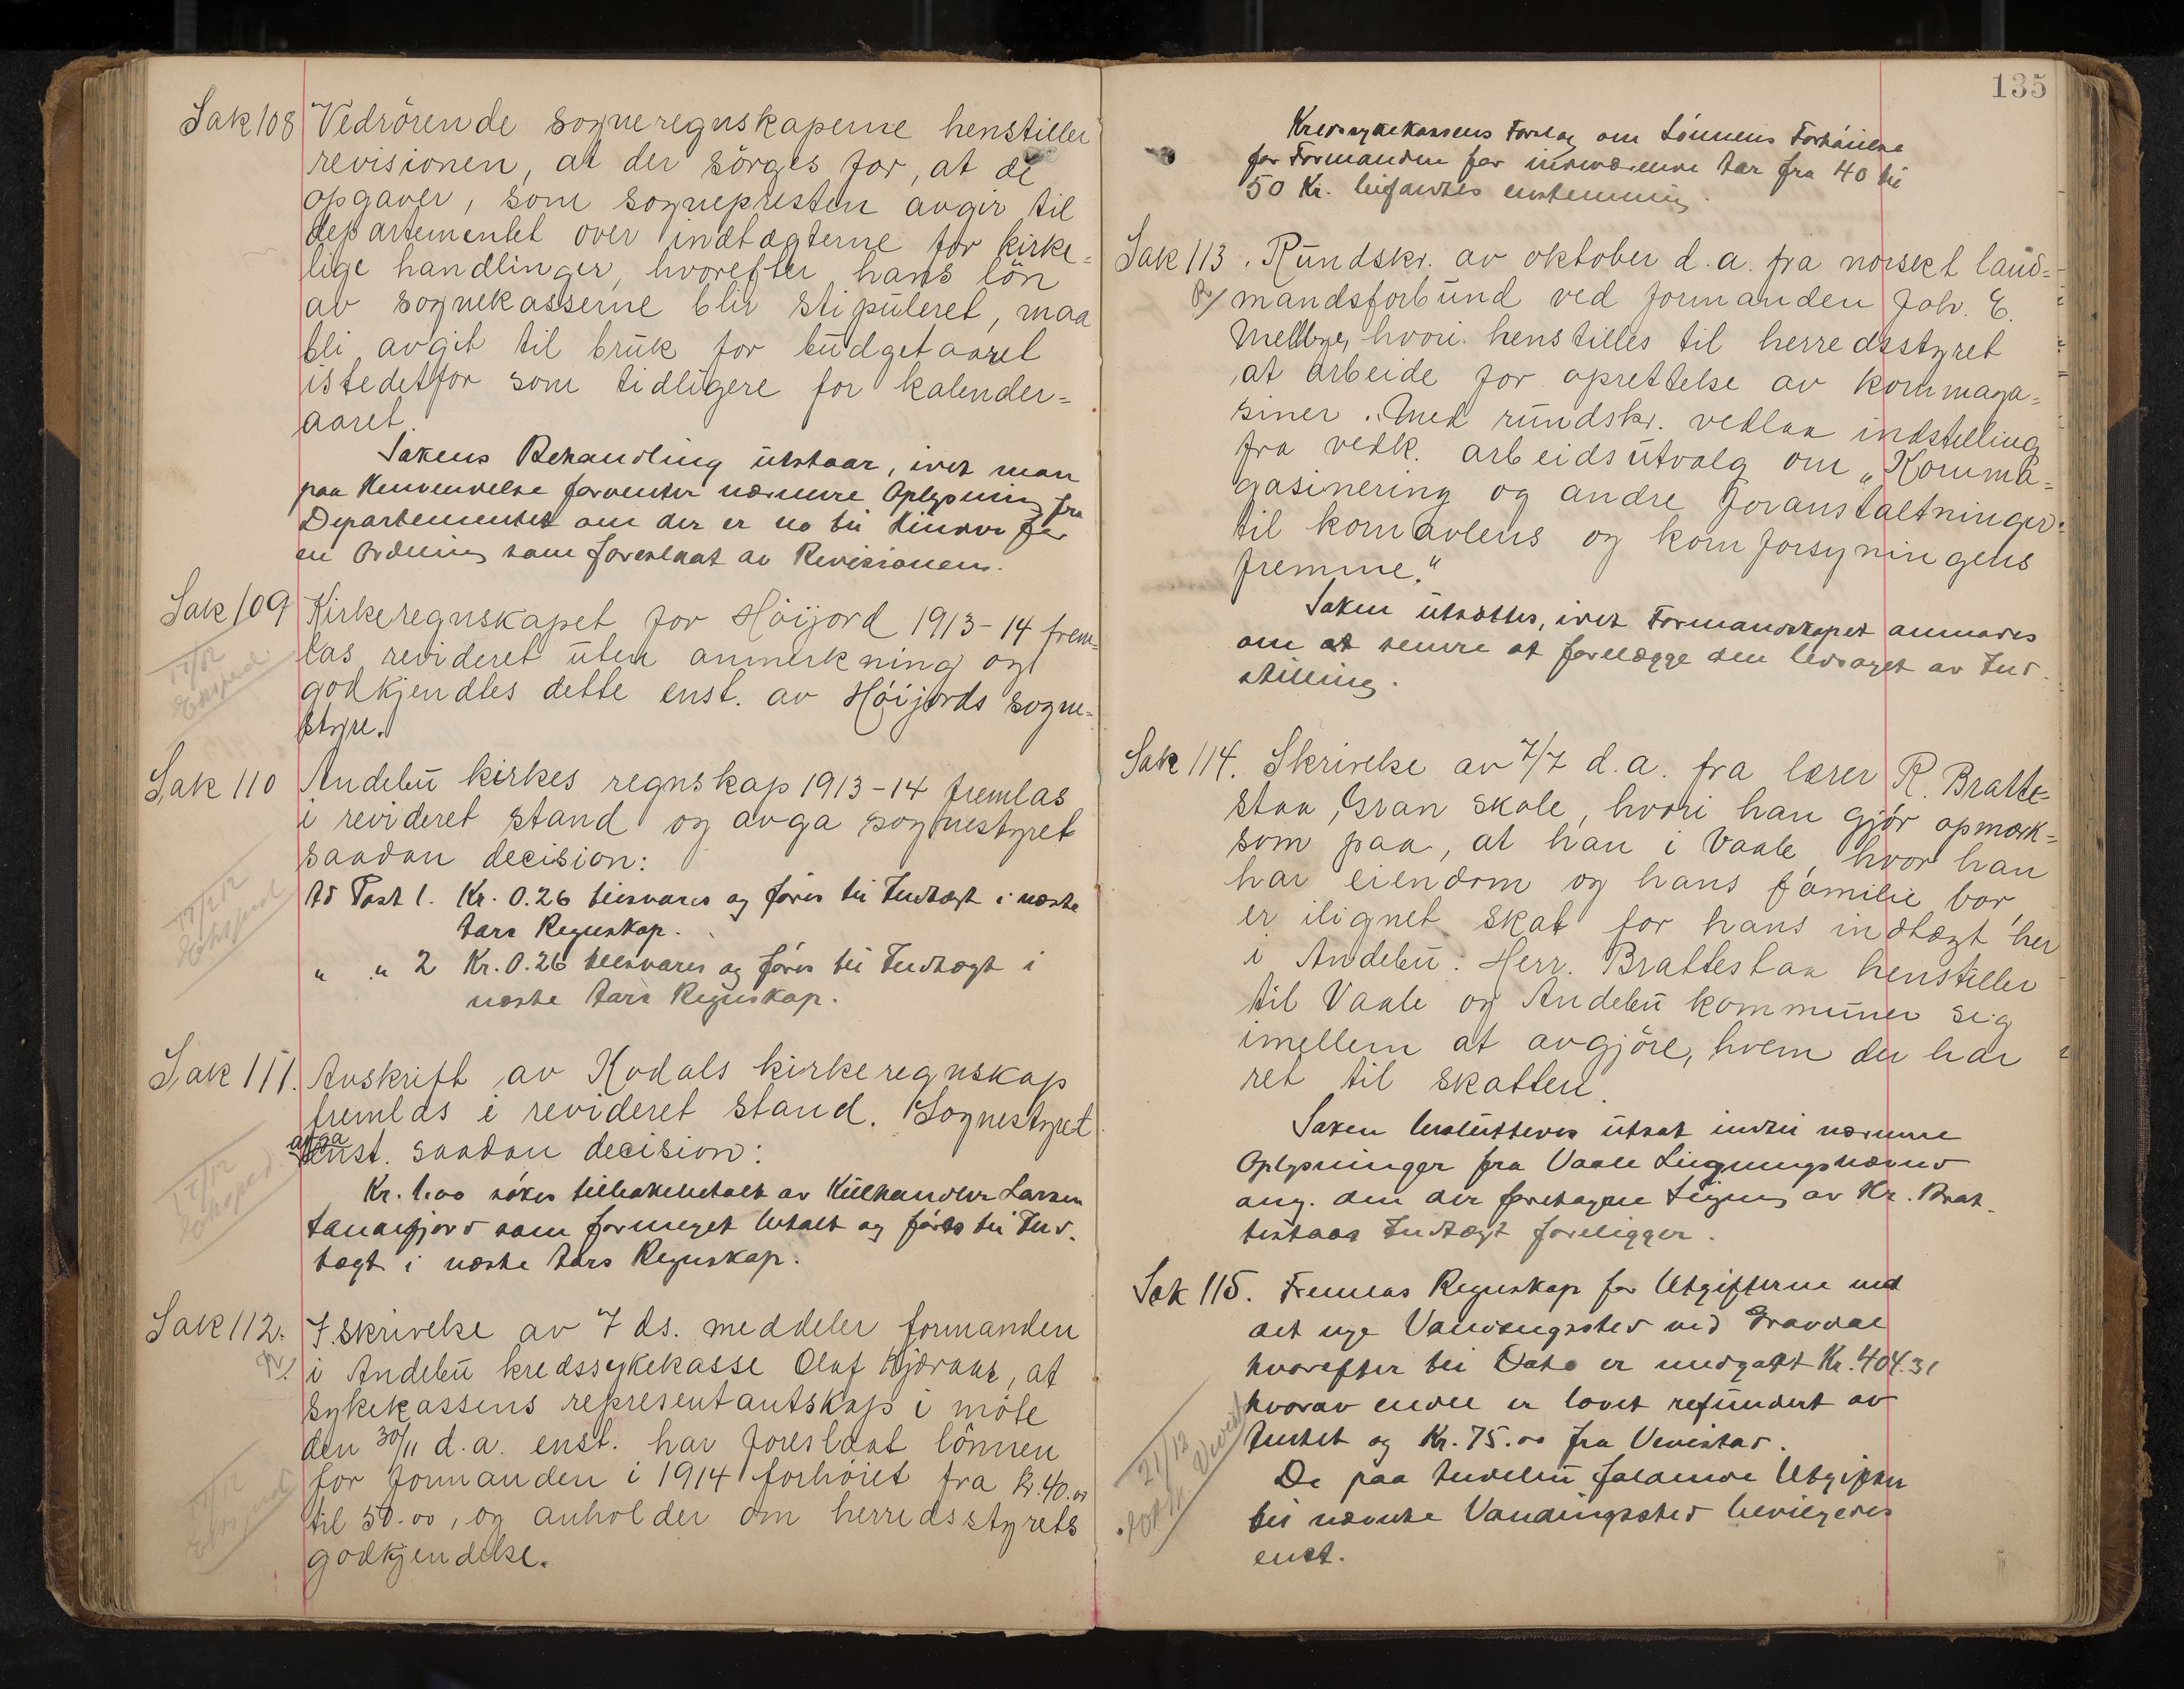 Sak 108 Vedrörende sogneregnskaperne henstiller
revisionen, at der sörges for, at de
opgaver, som sognepresten avgir til
departementet over indtægterne for kirke=
lige handlinger, hvorefter hans lön
av sognekasserne blir stipuleret, maa
bli avgit til bruk for budgetaaret
istedetfor som tidligere for kalender=
aaret.
Sakens Behandling utstaar, idet man
paa Henvendelse forventer nærmere Oplysning fra
Departementet om der er no til Hinder for
en Ordning som foreslaat av Revisionen.
Sak 109 Kirkeregnskapet for Höijord 1913-14 frem=
las revideret uten anmerkning og
godkjendtes dette enst. av Höijords sogne=
styre.
17/12
Eksped.
Sak 110 Andebu kirkes regnskap 1913-14 fremlas
i revideret stand og avga sognestyret
saadan decision:
Ad Post 1. Kr. 0.26 tilsvares og föres til Indtægt i næste
Aars Regnskap.
" " 2 Kr. 0.26 tilsvares og föres til Indtægt i
næste Aars Regnskap.
17/12
Eksped
Sak 111. Avskrift av Kodals kirkeregnskap
fremlas i revideret stand. Sognestyret
avga
enst. saadan decision:
Kr. 1.00 sökes tilbakebetalt av Kulhandler Larsen
Sandefjord som formeget betalt og föres til Ind-
tægt i næste Aars Regnskap.
17/12
Eksped.
Sak 112. I skrivelse av 7 ds. meddeler formanden
i Andebu kredssykekasse Olaf Björaas, at
sykekassens representantskap i möte
den 30/11 d.a. enst. har foreslaat lönnen
for formanden i 1914 forhöiet fra kr. 40.00
til 50.00, og anholder om herredsstyrets
godkjendelse.
17/12
Eksped
135
Kredssykekassens Forslag om Lönnens Forhöielse
for Formanden for indeværende Aar fra 40 til
50 Kr. bifaldtes enstemmig.
Sak 113. Rundskr. av oktober d.a. fra norsekt land=
mandsforbund ved formanden Joh. E.
Mellbye, hvori henstilles til herredsstyret
at arbeide for oprettelse av kornmaga=
siner. Med rundskr. vedlaa indstelling
fra vedk. arbeidsutvalg om „Kornma=
gasinering og andre foranstaltninger
til kornavlens og kornforsyningens
fremme."
Saken utsættes, idet Formandskapet anmodes
om at senere at forelægge den ledsaget av Ind-
stilling.
Sak 114. Skrivelse av 7/7 d.a. fra lærer R. Bratte=
staa, Gran skole, hvori han gjör opmerk=
som paa, at han i Vaale, hvor han
har eiendom og hans familie bor,
er ilignet skat for hans indtægt her
i Andebu. Herr. Brattestaa henstiller
til Vaale og Andebu kommuner sig
imellem at avgjöre, hvem der har
ret til skatten.
Saken besluttedes utsat indtil nærmere
Oplysninger fra Vaale Ligningsnævnd
ang. den der foretagne Ligning av Hr. Brat-
testaas Indtægt foreligger.
Sak 115. Fremlas Regnskap for Utgifterne med
det nye Vandingssted ved Gravdal
hvorefter til Dato er medgaatt Kr. 404.31
hvorav endel er lovet refundert av
Amtet og Kr. 75.00 fra
De paa Andebu faldende Utgifter
til nævnte Vandingssted bevilgedes
enst.
21/12